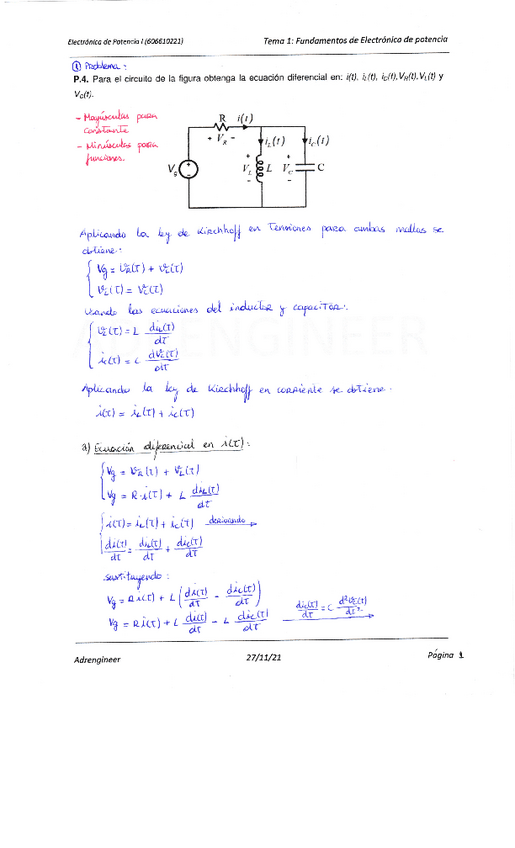 Electrónica de Potencia I (606610221) Tema 1: Fundamentos de Electrónica de potencia
① Problema :
P.4. Para el circuito de la figura obtenga la ecuación diferencial en: i(t), iL(t), iC(t), VR(t), VL(t) y
VC(t).
- Mayúsculas para
constante
- Minúsculas para
funciones.
R i(t)
+ VR -
iL(t) iC(t)
Vg
+ +
VL L VC C
- -
Aplicando la ley de Kirchhoff en Tensiones para ambas mallas se
obtiene:
Vg = vR(t) + vC(t)
vL(t) = vC(t)
Usando las ecuaciones del inductor y capacitor:
vL(t) = L diL(t)/dt
iC(t) = C dvC(t)/dt
Aplicando la ley de Kirchhoff en corriente se obtiene.
i(t) = iL(t) + iC(t)
a) Ecuación diferencial en i(t):
Vg = vR(t) + vL(t)
Vg = R·i(t) + L diL(t)/dt
i(t) = iL(t) + iC(t) derivando
di(t)/dt = diL(t)/dt + diC(t)/dt
sustituyendo :
Vg = R i(t) + L (di(t)/dt - diC(t)/dt)
Vg = R i(t) + L di(t)/dt - L diC(t)/dt diC(t)/dt = C d²vC(t)/dt²
ADRENGINEER
Adrengineer 27/11/21 Página 1